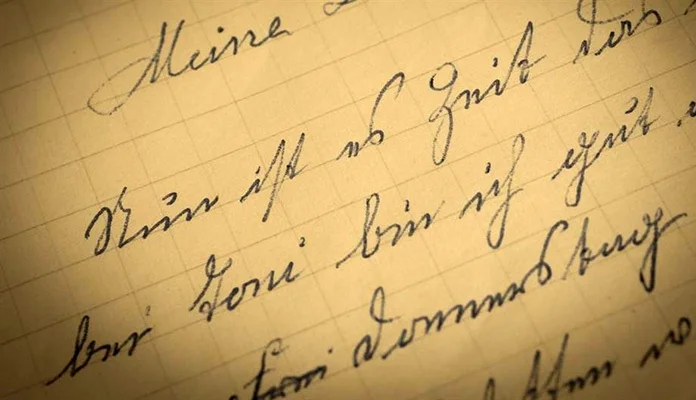 Meine
Nun ist es Zeit das
bei Toni bin ich gut
Donnerstag